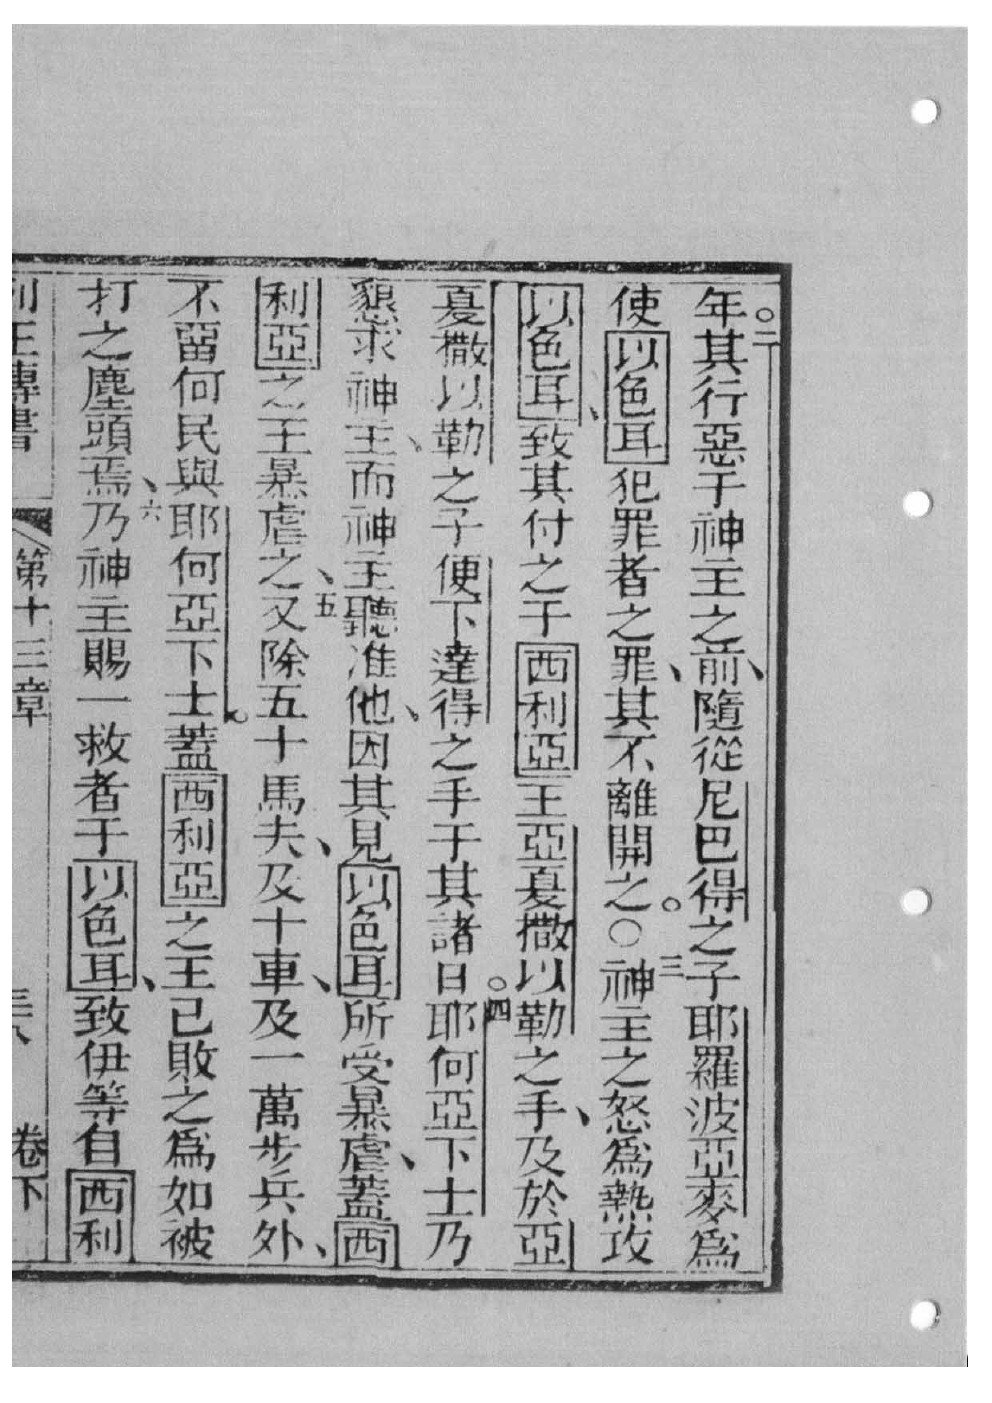 年其行惡于神主之前、隨從尼巴得之子耶羅波亞麥爲
○二
使以色耳犯罪者之罪、其不離開之。○神主之怒爲熱攻
三
以色耳、致其付之于西利亞王亞戞撒以勒之手、及於亞
戞撒以勒之子便下達得之手于其諸日。耶何亞下士乃
四
懇求神主、而神主聽准他、因其見以色耳所受暴虐、蓋西
利亞之王暴虐之、又除五十馬夫、及十車、及一萬步兵外、
五
不畱何民與耶何亞下士。蓋西利亞之王已敗之爲如被
打之塵頭焉、乃神主賜一救者于以色耳、致伊等自西利
六
列王傳書 第十三章 卷下